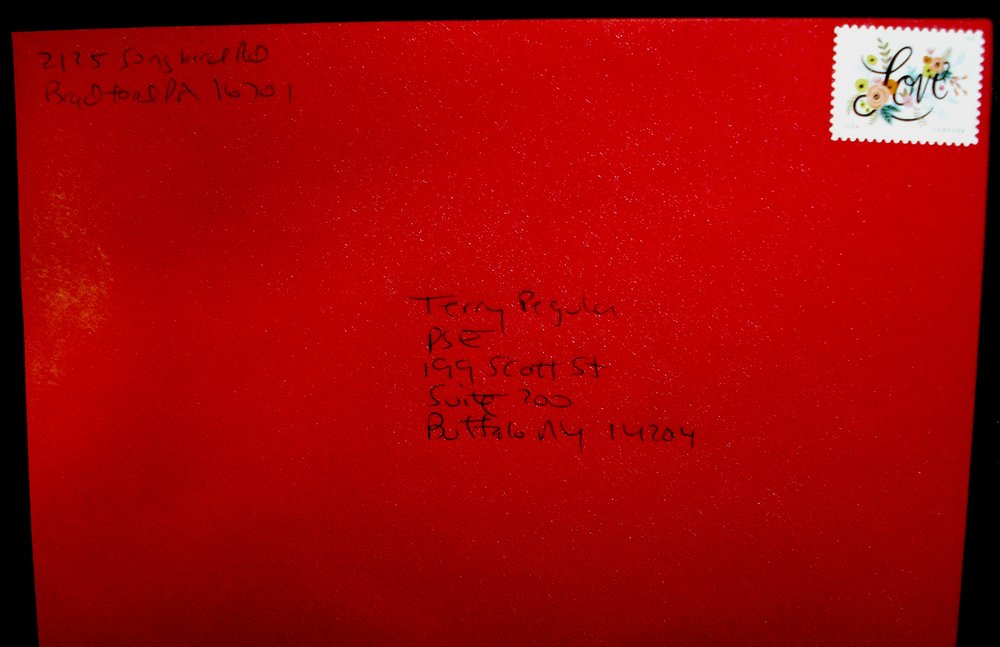 2125 Songbird RD
Bradford PA 16701
Love
USA FOREVER
Terry Pegula
PSE
199 Scott St
Suite 200
Buffalo NY 14204